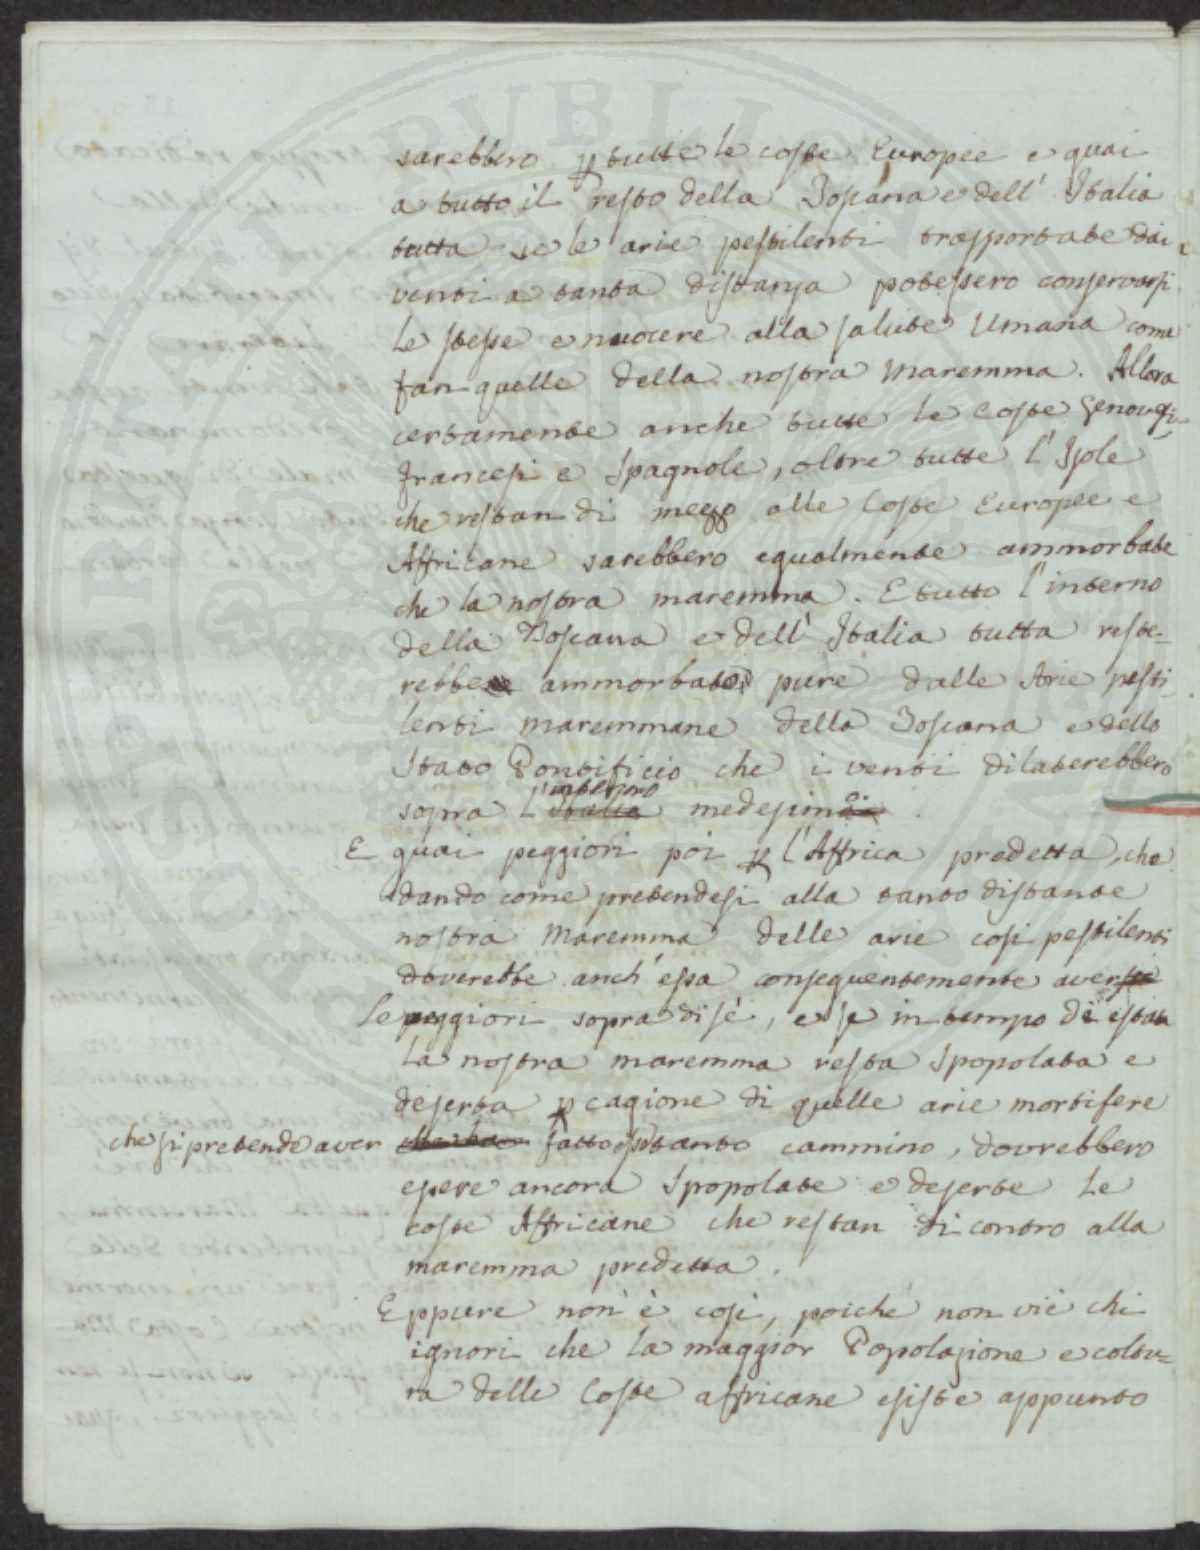 sarebbero p tutte le coste Europee e guai
a tutto il resto della Toscana e dell' Italia
tutta se le arie pestilenti trasportate dai
venti a tanta distanza potessero conservarsi
le stesse e nuocere alla salute Umana come
fan quelle della nostra Maremma. Allora
certamente anche tutte le Coste Genovesi
francesi e Spagnole, oltre tutte l' Isole
che restan di mezzo alle Coste Europee e
Affricane sarebbero egualmente ammorbate
che la nostra maremma. E tutto l'interno
della Toscana e dell' Italia tutta reste-
rebbe ammorbato pure dalle Arie pesti-
lenti maremmane della Toscana e dello
Stato Pontificio che i venti dilaterebbero
interno
sopra l' Italia medesimo.
E guai peggiori poi p l'Affrica predetta, che
dando come pretendesi alla tanto distante
nostra Maremma delle arie cosi pestilenti
doverebbe anch' essa conseguentemente aver
le peggiori sopra di sè, e se in tempo di estate
la nostra maremma resta Spopolata e
deserta p cagione di quelle arie mortifere
che si pretende aver fatto tanto cammino, dovrebbero
essere ancora Spopolate e deserte le
coste Affricane che restan di contro alla
maremma predetta.
Eppure non è così, poiché non viè chi
ignori che la maggior Popolazione e coltu-
ra delle Coste affricane esiste appunto